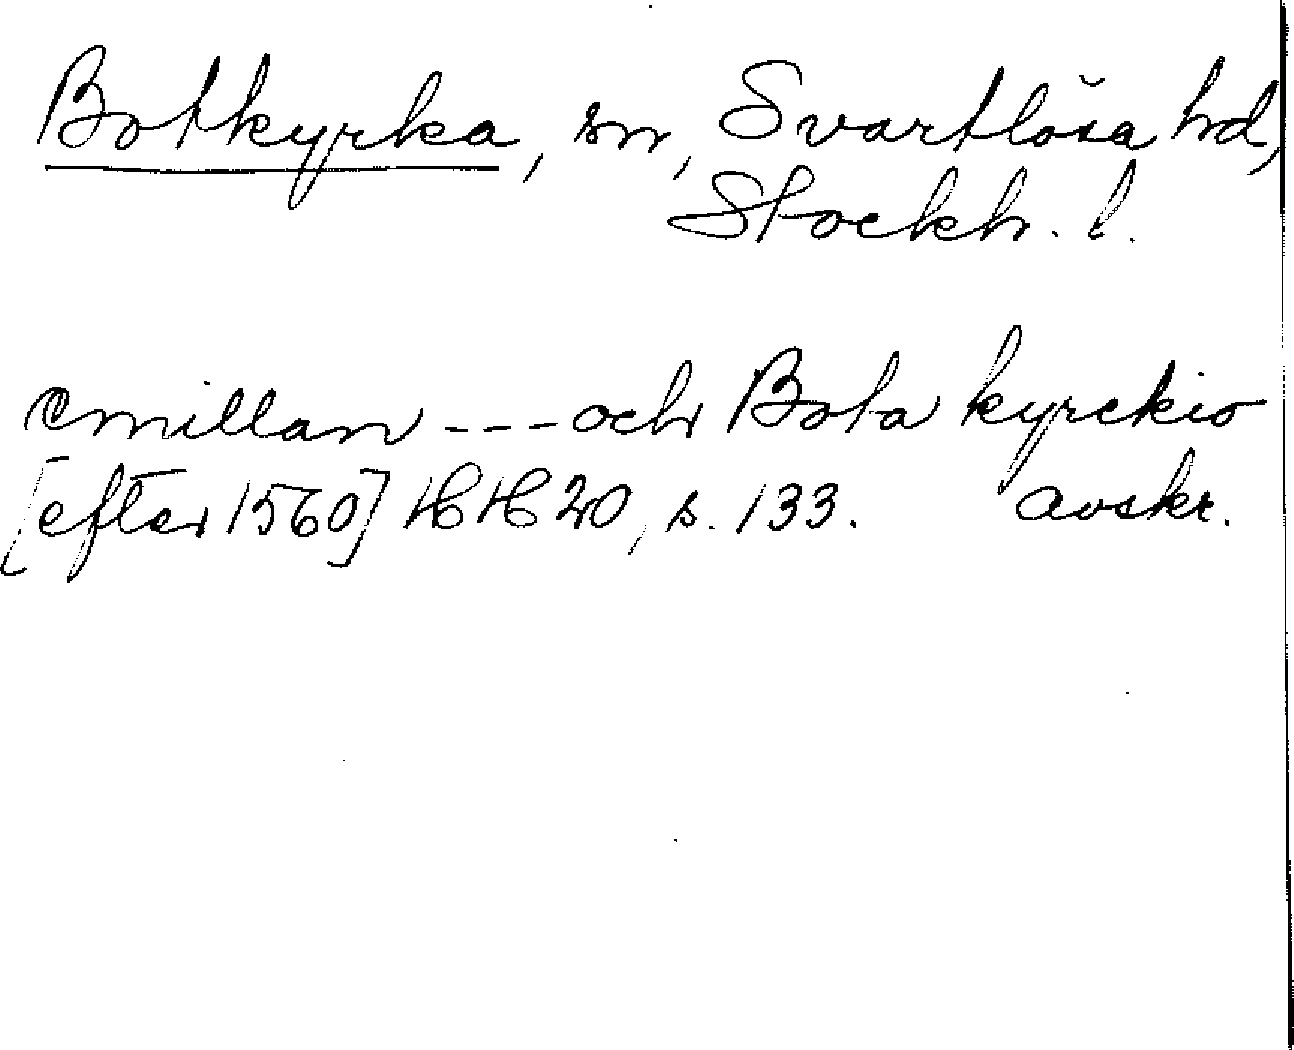 Botkyrka, sn, Svartlösa hd,
Stockh. l.
emillan --- och Bota kyrckio
[efter 1560] HH 20, s. 133. avskr.